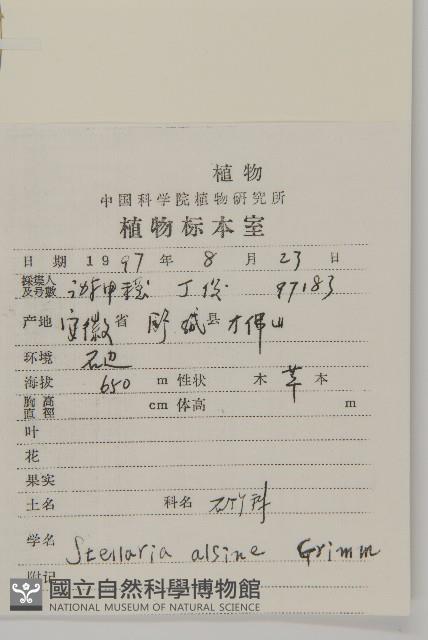 植物
中国科学院植物研究所
植物标本室
日 期 1997 年 8 月 23 日
採集人及号數 丁 97183
产地 安徽 省 县 佛山
环境 石边
海拔 650 m 性状 木 草 本
胸高直徑 cm 体高 m
叶
花
果实
土名 科名 石竹科
学名 Stellaria alsine Grimm
附记
國立自然科學博物館
NATIONAL MUSEUM OF NATURAL SCIENCE